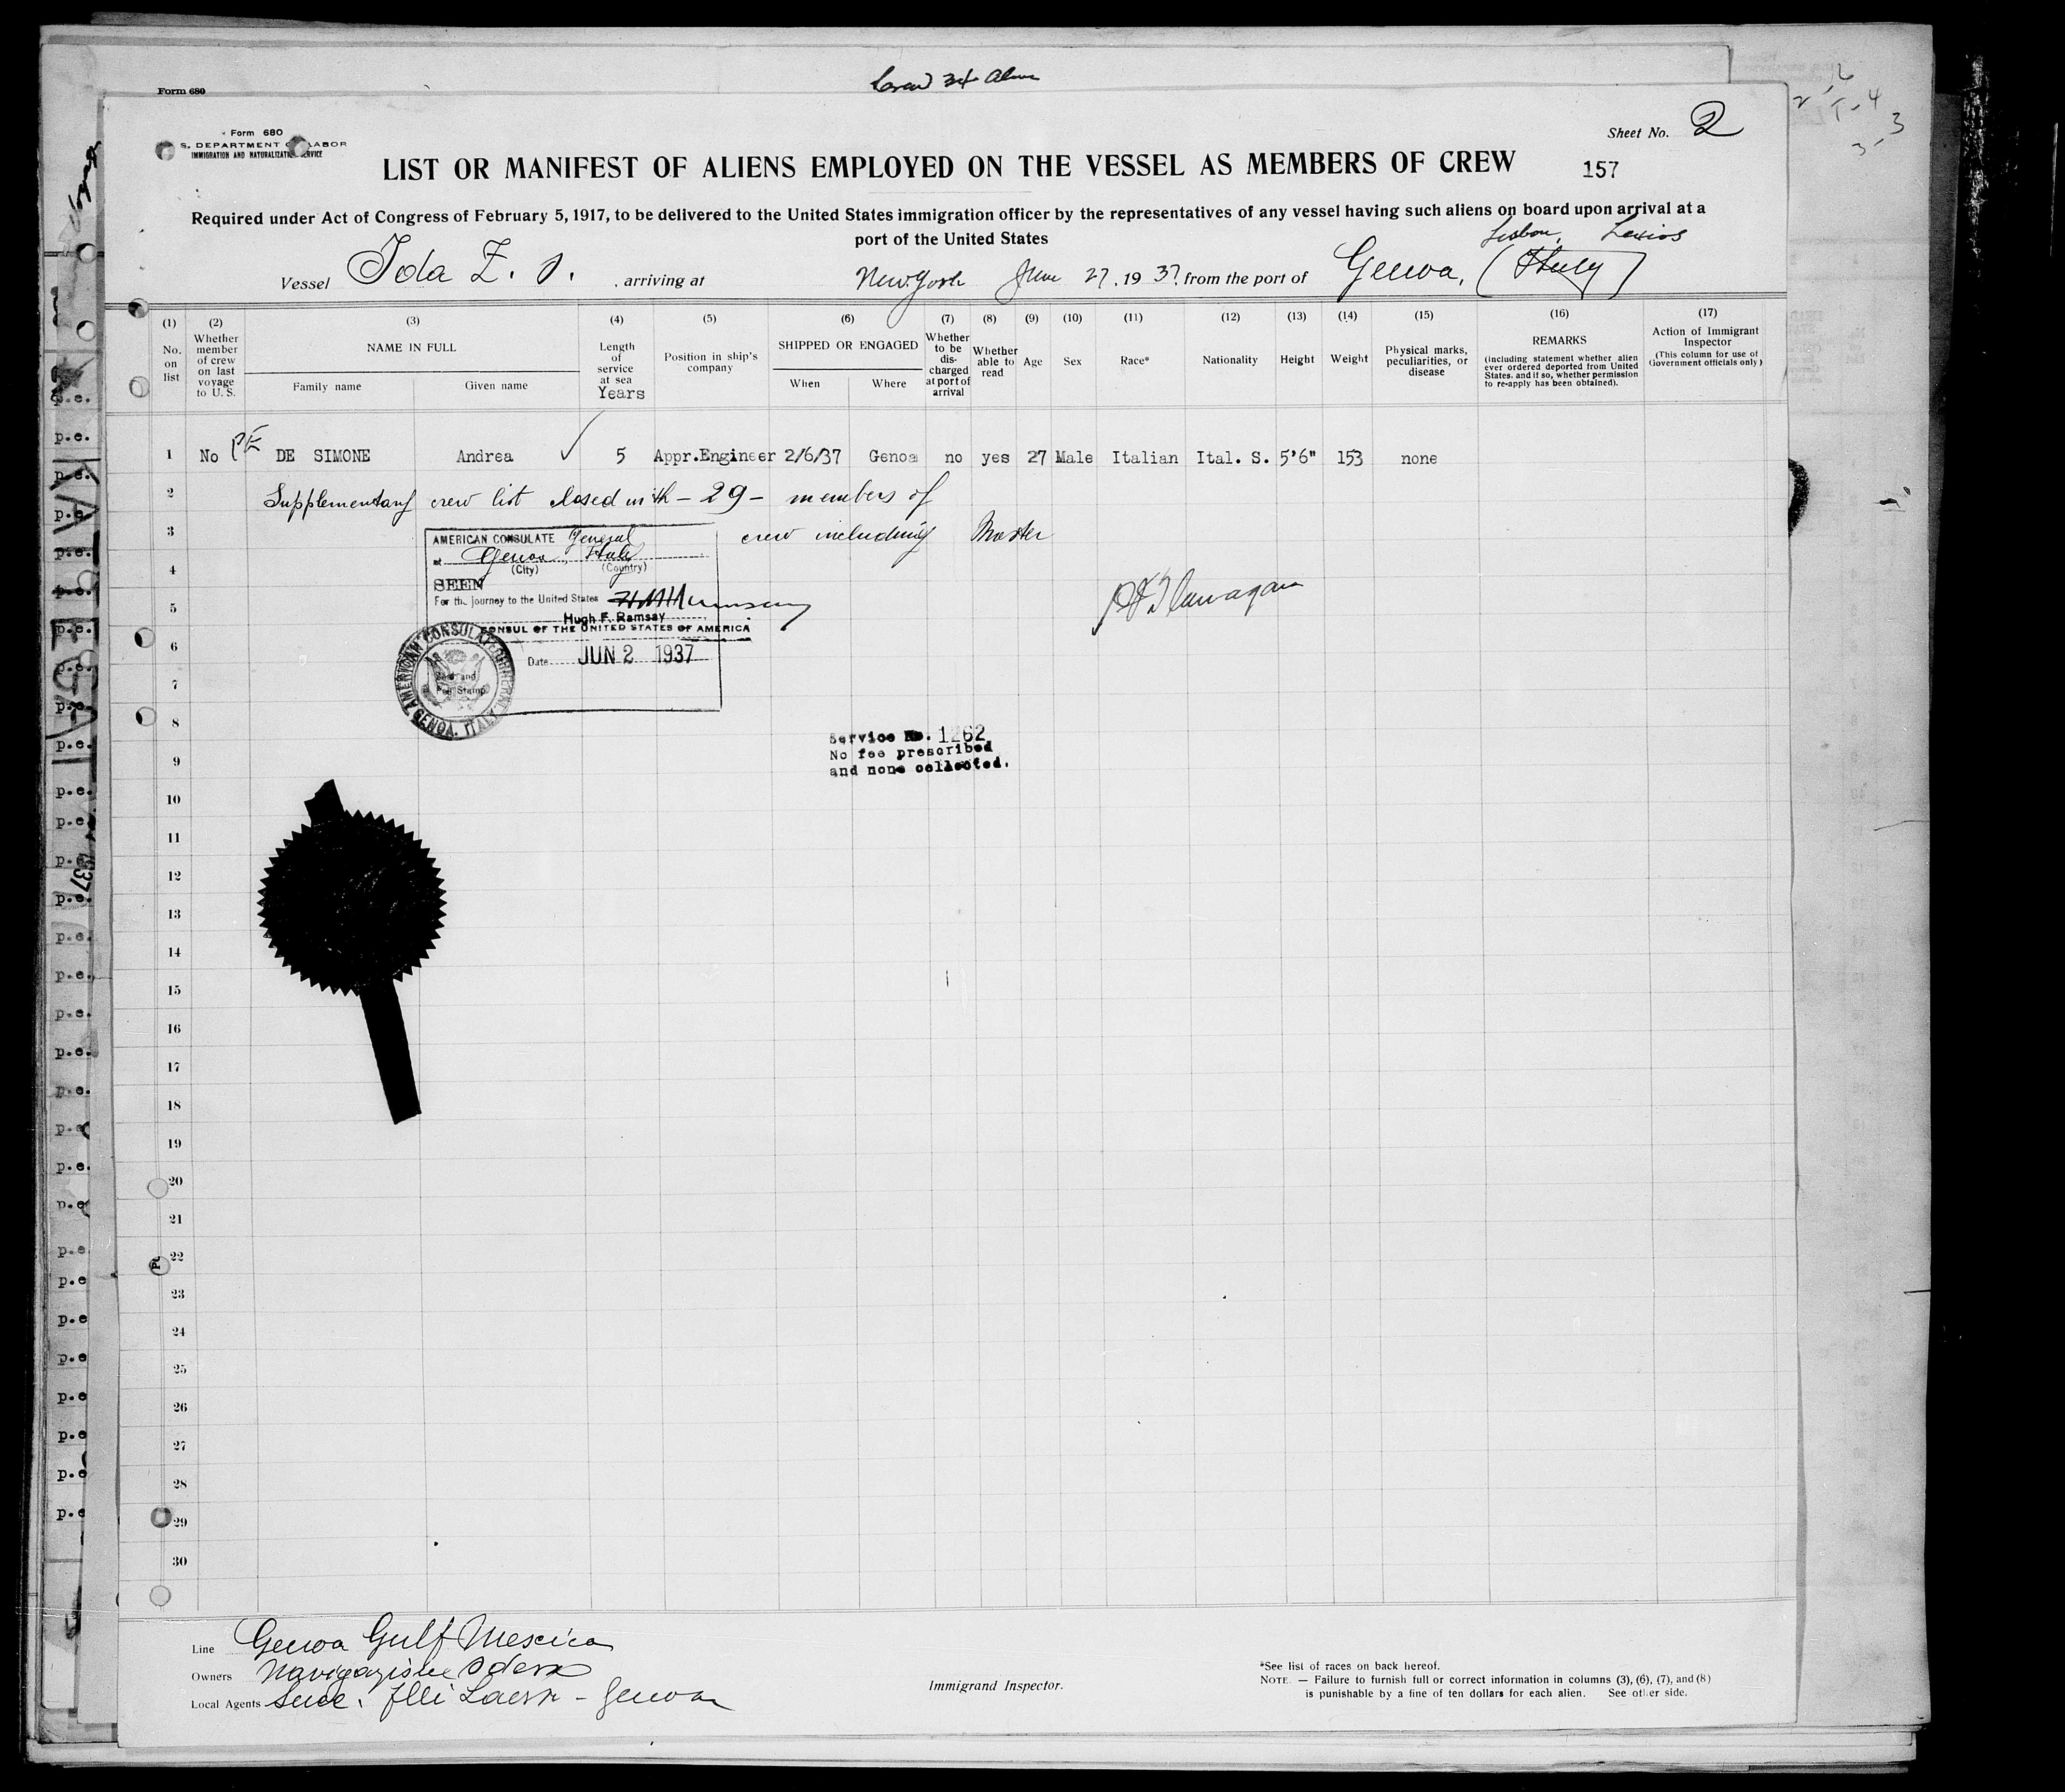 Form 680
Form 680
S. DEPARTMENT OF LABOR
IMMIGRATION AND NATURALIZATION SERVICE
Sheet No. 2
LIST OR MANIFEST OF ALIENS EMPLOYED ON THE VESSEL AS MEMBERS OF CREW
157
Required under Act of Congress of February 5, 1917, to be delivered to the United States immigration officer by the representatives of any vessel having such aliens on board upon arrival at a
port of the United States
Lisbon,
Vessel Ida Z. O. , arriving at New York June 27, 1937, from the port of Genoa, (Italy)
(1) (2) (3) (4) (5) (6) (7) (8) (9) (10) (11) (12) (13) (14) (15) (16) (17)
No. on list
Whether member of crew on last voyage to U. S.
NAME IN FULL
Family name
Given name
Length of service at sea
Years
Position in ship's company
SHIPPED OR ENGAGED
When
Where
Whether to be discharged at port of arrival
Whether able to read
Age
Sex
Race*
Nationality
Height
Weight
Physical marks, peculiarities, or disease
REMARKS
(including statement whether alien ever ordered deported from United States, and if so, whether permission to re-apply has been obtained).
Action of Immigrant Inspector
(This column for use of Government officials only)
1 No PE DE SIMONE Andrea 5 Appr.Engineer 2/6/37 Genoa no yes 27 Male Italian Ital. S. 5'6" 153 none
2 Supplementary crew list closed with - 29 - members of
3 crew including Master
AMERICAN CONSULATE General
at Genoa, Italy
(City) (Country)
4
SEEN
For the journey to the United States
5
Hugh F. Ramsay
CONSUL OF THE UNITED STATES OF AMERICA
6
Date JUN 2 1937
AMERICAN CONSULATE GENERAL
GENOA, ITALY
7
8
Service No. 1262
No fee prescribed
and none collected.
9
10
11
12
13
14
15
16
17
18
19
20
21
22
23
24
25
26
27
28
29
30
Line Genoa Gulf Mexico
Owners Navigazione Odero
Local Agents Genoa
Immigrand Inspector.
*See list of races on back hereof.
NOTE. — Failure to furnish full or correct information in columns (3), (6), (7), and (8)
is punishable by a fine of ten dollars for each alien. See other side.